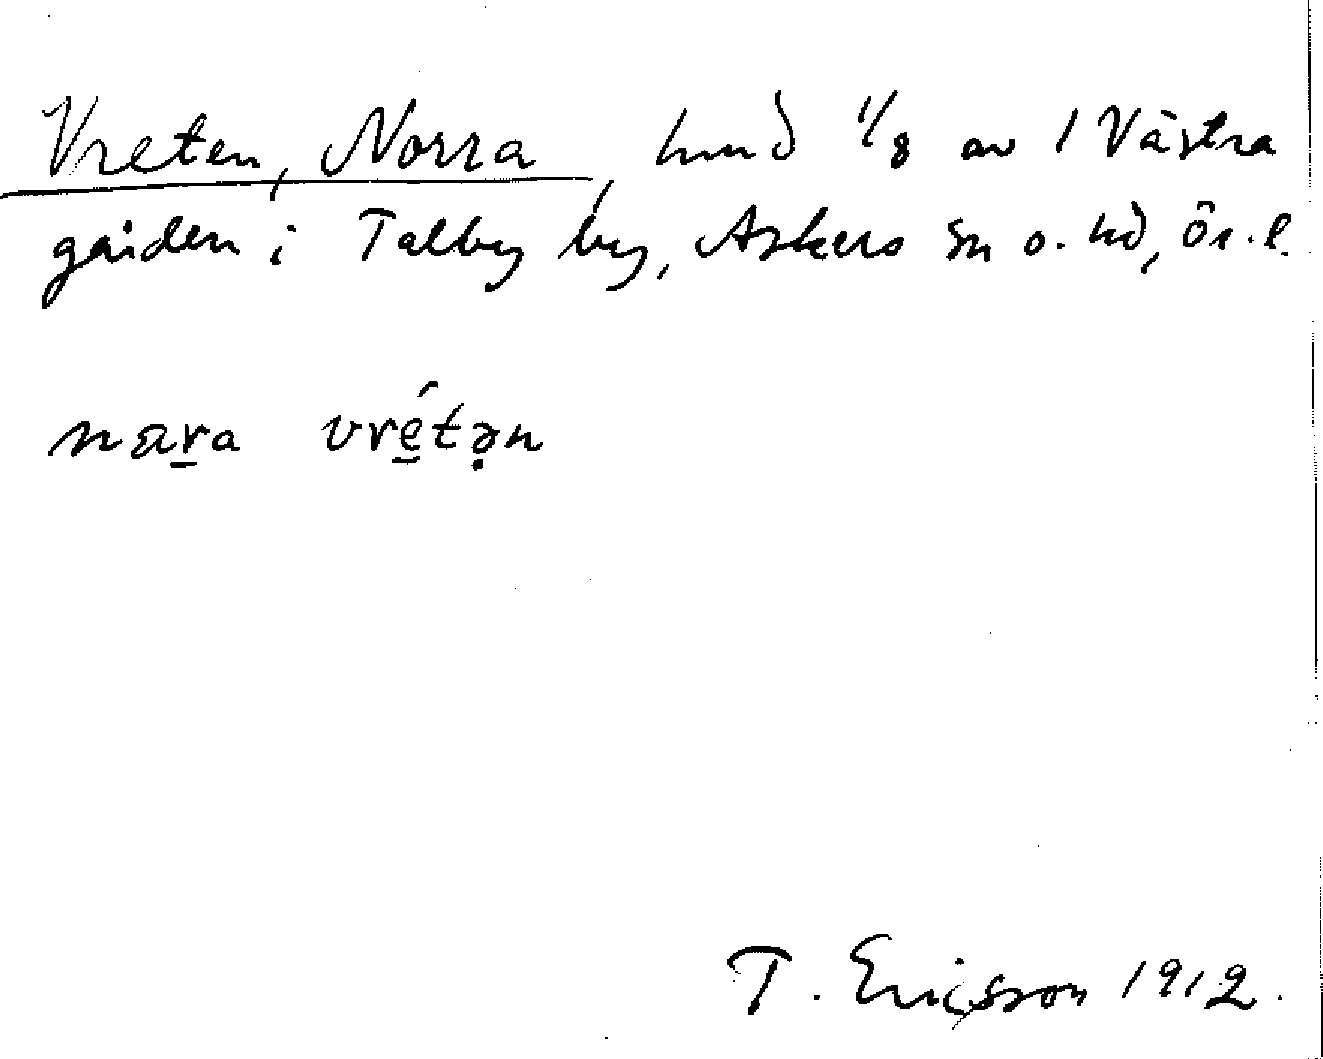 Vreten, Norra, hmd 1/8 av 1 Västra
gården i Talby by, Askers sn o. hd, Ör. l.
nar̲a vré̲tə̣n
T. Ericsson 1912.